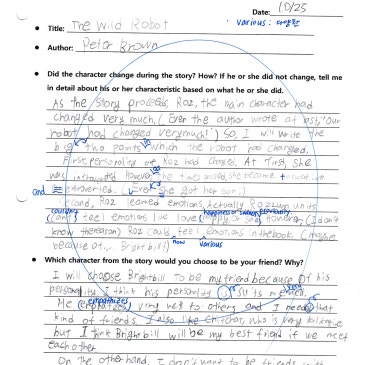 Date: 10/25
various : 다양한
Title: The Wild Robot
Author: Peter Brown
Did the character change during the story? How? If he or she did not change, tell me
in detail about his or her characteristic based on what he or she did.
As the story process, Roz, the main character had
changed very much. (Even the author wrote at last, "Our
robot had changed very much!") So, I will write the
big two points which the robot had changed.
First, personality of Roz had changed. At first, she
was introverted. However, the time passed she became
and extroverted. (Even she got her son.)
Second, Roz learned emotions. Actually Rozzum units
couldn't
can't feel emotions like love, happy or
know the reason) Roz could feel emotions in the book. (Maybe
now various
because of... Brightbill!)
Which character from the story would you choose to be your friend? Why?
I will choose Brightbill to be my friend because of his
personality. I think his personality suits me
empathizes
He very well to others and I need that
kind of friends. I also like Chitchat, who is very talkative
but I think Brightbill will be my best friend if we meet
each other.
On the other hand, I don't want to be friends with